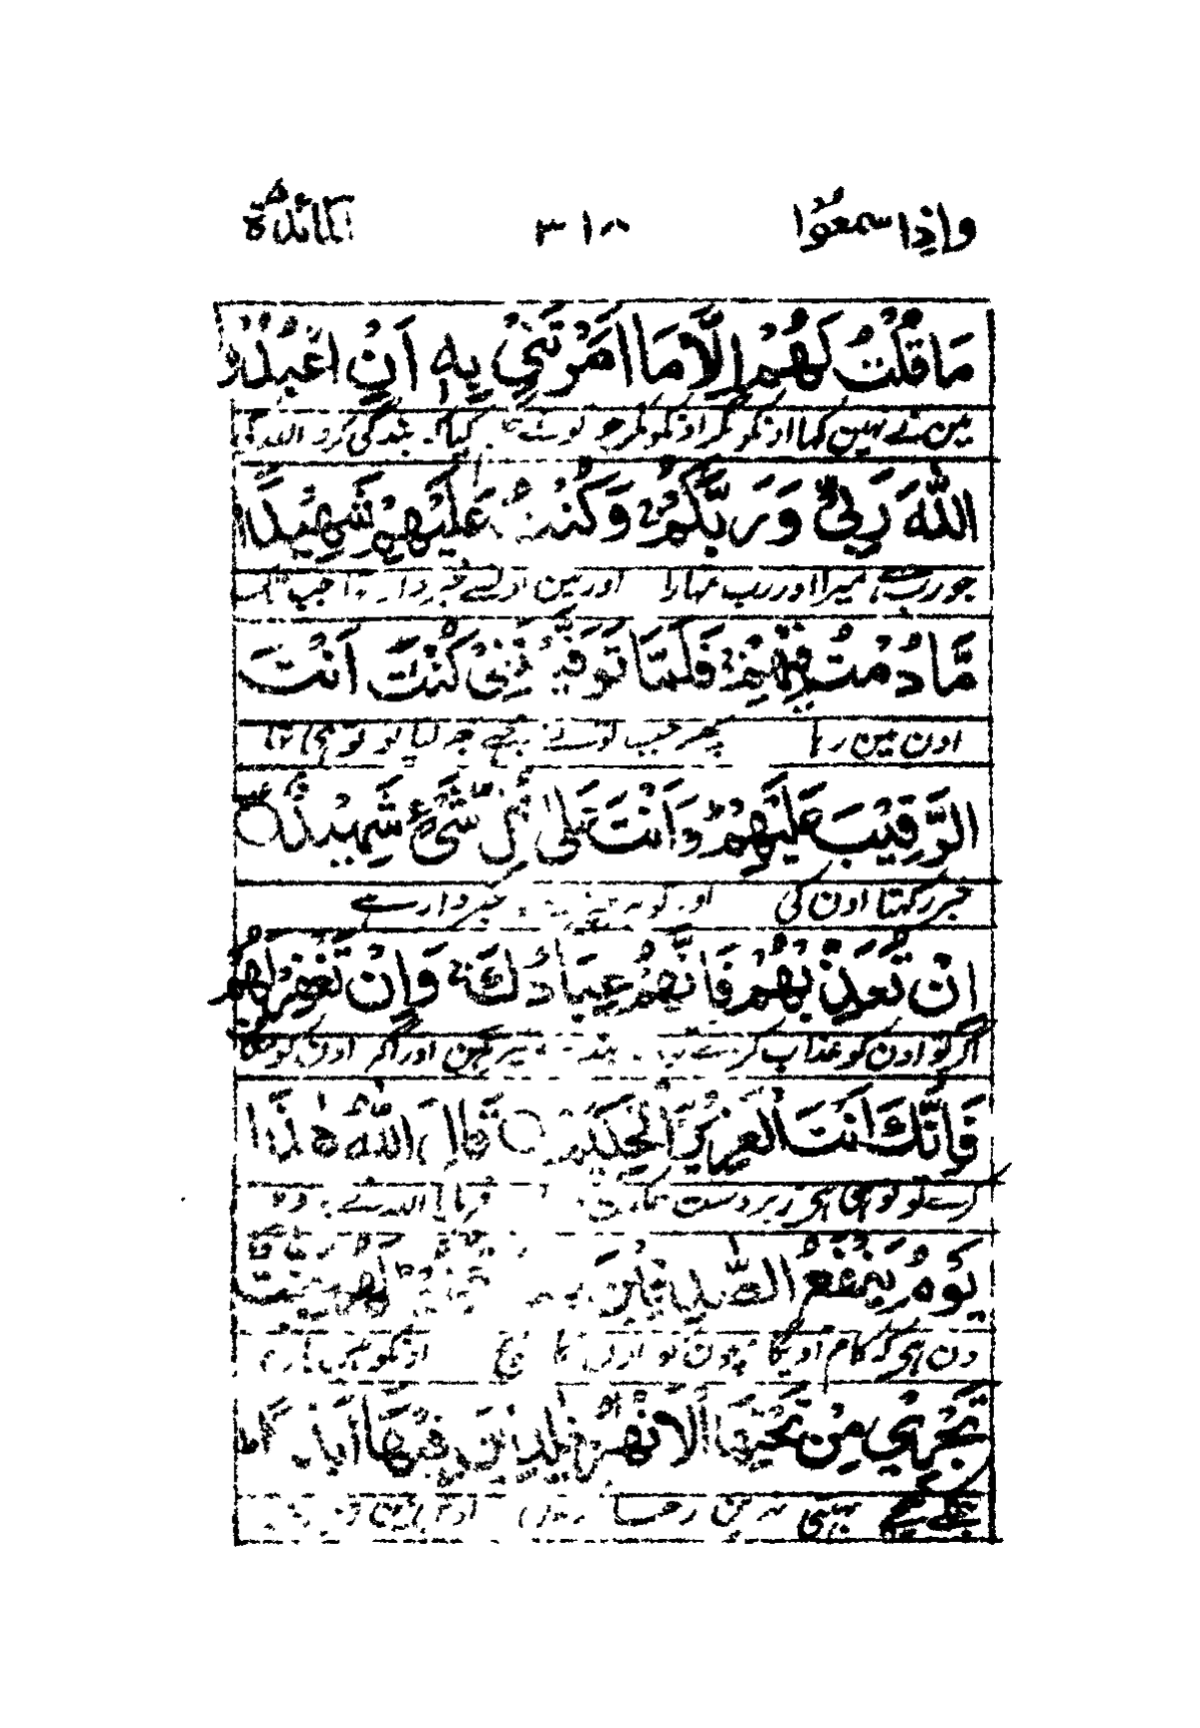 واذا سمعوا ٣١٨ المآئدة
مَا قُلْتُ لَهُمْ اِلَّا مَا اَمَرْتَنِيْ بِهٖ اَنِ اعْبُدُوا
مین نے نہین کہا اونکو مگر جو تونے کہا کہ بندگی کرو اللہ کی
اللّٰهَ رَبِّيْ وَرَبَّكُمْ وَكُنْتُ عَلَيْهِمْ شَهِيْدًا
جو رب ہے میرا اور رب تمہارا اور مین اونسے خبردار تہا جب تک
مَّا دُمْتُ فِيْهِمْ فَلَمَّا تَوَفَّيْتَنِيْ كُنْتَ اَنْتَ
اون مین رہا پھر جب تونے مجھے بھر لیا تو تو ہی تہا
الرَّقِيْبَ عَلَيْهِمْ وَاَنْتَ عَلٰى كُلِّ شَيْءٍ شَهِيْدٌ
خبر رکھتا اون کی اور تو ہر چیز سے خبردار ہے
اِنْ تُعَذِّبْهُمْ فَاِنَّهُمْ عِبَادُكَ وَاِنْ تَغْفِرْ لَهُمْ
اگر تو اون کو عذاب کرے اور اگر اون کو
فَاِنَّكَ اَنْتَ الْعَزِيْزُ الْحَكِيْمُ قَالَ اللّٰهُ هٰذَا
کرے تو تو ہی ہی زبردست حکمت فرمایا اللہ نے یہ وہ
يَوْمُ يَنْفَعُ الصّٰدِقِيْنَ لَهُمْ جَنّٰتٌ
دن ہی کہ کام آویگا سچون کو اون کا سچ اونکو ہین باغ
تَجْرِيْ مِنْ تَحْتِهَا الْاَنْهٰرُ خٰلِدِيْنَ فِيْهَا اَبَدًا
نیچے بہتی نہرین رہا